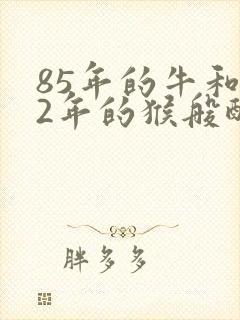 85年的牛和
2年的猴般酉
胖多多